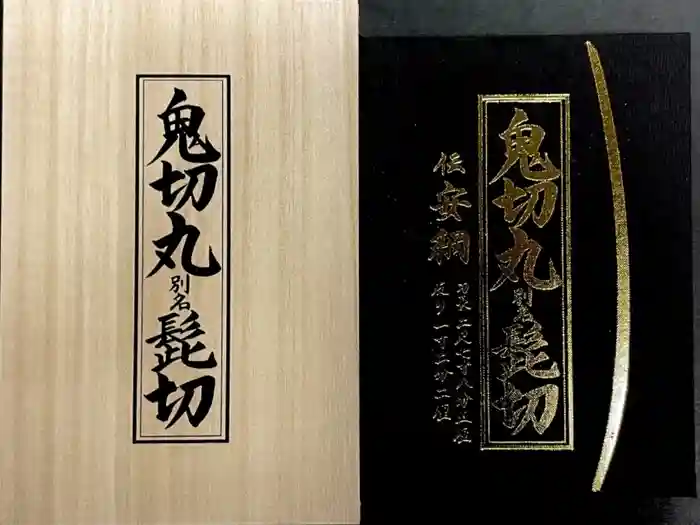 鬼切丸別名髭切
鬼切丸別名髭切
伝安綱
刃長二尺七寸八分五厘
反り一寸二分二厘